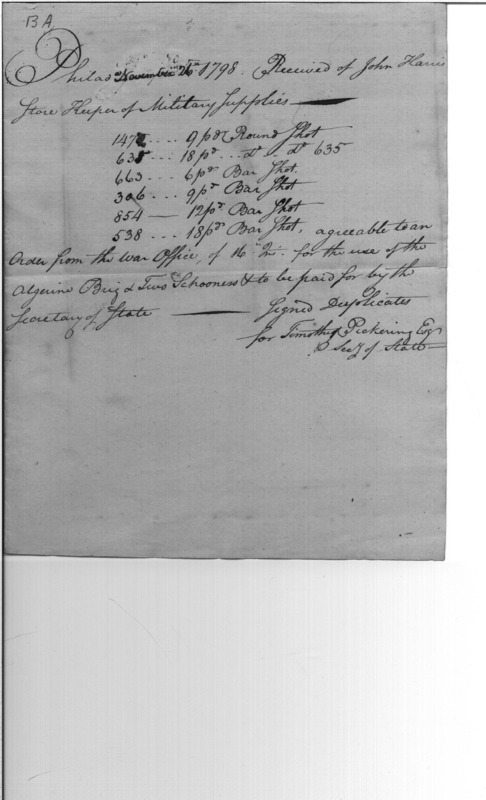 BA
Philad November 26th 1798. Received of John Harris
Store Keeper of Military Supplies
147 .... 9 pdr Round Shot
635 ... 18 pr ... do .. do 635
663 ... 6 pr Bar Shot.
306 ... 9 pr Bar Shot
854 — 12 pr Bar Shot
538 ... 18 pr Bar Shot, agreeable to an
Order from the War Office, of 16th Int. for the use of the
algerine Brig & Two Schooners & to be paid for by the
Secretary of State — Signed Duplicates
for Timothy Pickering Esq
Secy of State